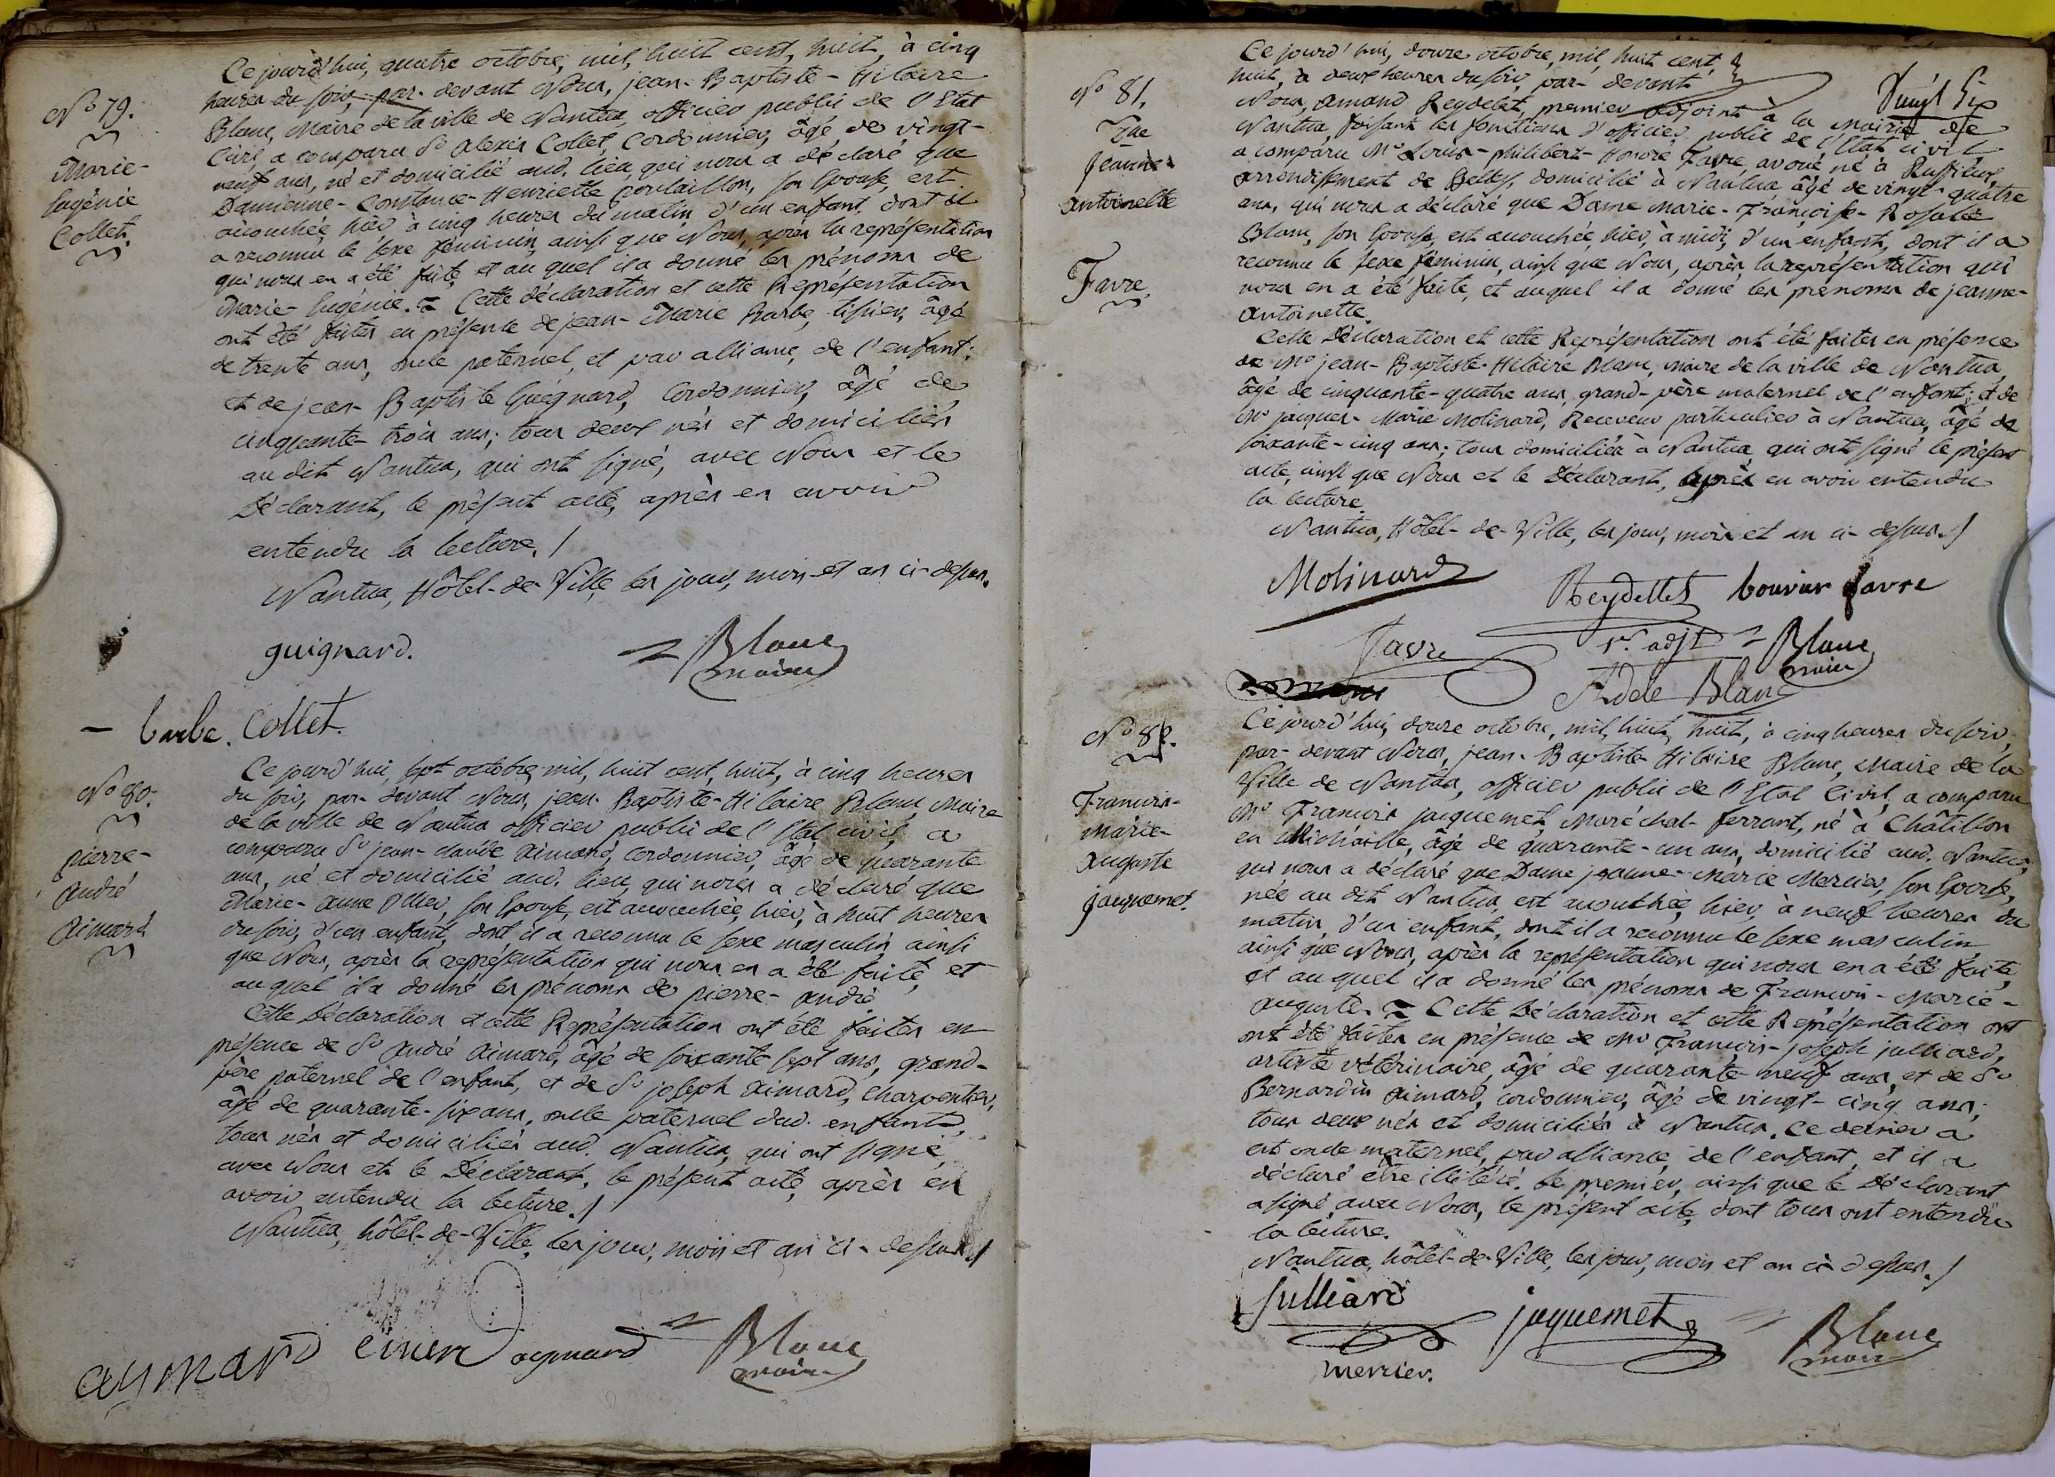 Ce jourd'hui, quatre octobre, mil, huit cent, huit, à cinq
heures du soir, par-devant Nous, jean-Baptiste-Hilaire
Blanc, Maire de la ville de Nantua, officier public de l'Etat
Civil, a comparu Sr. Alexis Collet, Cordonnier, âgé de vingt-
neuf ans, né et domicilié aud. lieu, qui nous a déclaré que
Damienne-Constance-Henriette poulaillon, son Epouse, est
accouchée hier, à cinq heures du matin, d'un enfant dont il
a reconnu le sexe féminin, ainsi que Nous, après la représentation
qui nous en a été faite, et au quel il a donné les prénoms de
Marie-Eugénie. = Cette déclaration et cette Représentation
ont été faites en présence de jean-Marie Barbe, âgé
de trente ans, oncle paternel, et par alliance, de l'enfant;
et de jean-Baptiste Guignard, Cordonnier, âgé de
cinquante-trois ans; tous deux nés et domiciliés
au dit Nantua, qui ont signé, avec Nous et le
Déclarant, le présent acte, après en avoir
entendu la lecture./
Nantua, Hôtel-de-Ville, les jour, mois et an ci-dessus.
N° 79.
Marie-
Eugénie
Collet.
guignard.
Blanc
maire
barbe. Collet.
N° 80.
pierre-
andré
aimard
Ce jourd'hui, sept octobre, mil, huit cent, huit, à cinq heures
du soir, par-devant Nous, jean-Baptiste-Hilaire Blanc, Maire
de la ville de Nantua officier public de l'Etat civil, a
comparu Sr. jean-claude aimard, Cordonnier, âgé de quarante
ans, né et domicilié aud. lieu, qui nous a déclaré que
Marie-anne Ollier, son Epouse, est accouchée, hier, à huit heures
du soir, d'un enfant, dont il a reconnu le sexe masculin, ainsi
que Nous, après la représentation qui nous en a été faite, et
au quel il a donné les prénoms de pierre-andré
Cette Déclaration et cette Représentation ont été faites en
présence de Sr. andré aimard, âgé de soixante sept ans, grand-
père paternel de l'enfant, et de Sr. joseph aimard, Charpentier,
âgé de quarante-six ans, oncle paternel dud. enfant,
tous nés et domiciliés aud. Nantua, qui ont signé,
avec Nous et le Déclarant, le présent acte, après en
avoir entendu la lecture./
Nantua, hôtel-de-Ville, les jour, mois et an ci-dessus./
aymard aymard
Blanc
maire
Vingt Six
N° 81.
Jeanne-
antoinette
Favre.
Ce jourd'hui, douze octobre, mil, huit cent,
huit, à deux heures du soir, par-devant
Nous, amand Reydelet, premier adjoint à la Mairie de
Nantua, faisant les fonctions d'officier public de l'Etat civil
a comparu Mr. Louis-philibert-honoré Favre, avoué, né à Ruffieux,
arrondissement de Belley, domicilié à Nantua âgé de vingt-quatre
ans, qui nous a déclaré que Dame Marie-Françoise-Rosalie
Blanc, son Epouse, est accouchée, hier, à midi, d'un enfant, dont il a
reconnu le sexe féminin, ainsi que Nous, après la représentation qui
nous en a été faite, et auquel il a donné les prénoms de jeanne-
antoinette.
Cette Déclaration et cette Représentation ont été faites en présence
de Mr. jean-Baptiste-Hilaire Blanc, maire de la ville de Nantua,
âgé de cinquante-quatre ans, grand-père maternel de l'enfant; et de
Mr. jacques-Marie Molinard, Receveur particulier à Nantua, âgé de
soixante-cinq ans; tous domiciliés à Nantua, qui ont signé le présent
acte, ainsi que Nous et le Déclarant, après en avoir entendu
la lecture.
Nantua, Hôtel-de-Ville, les jour, mois et an ci-dessus./
Molinard Reydellet bouvier favre
Favre 1er. adjt Blanc
maire
Adele Blanc
N° 82.
Francois-
Marie-
auguste
jacquemet.
Ce jourd'hui, douze octobre, mil, huit, huit, à cinq heures du soir,
par-devant Nous, jean-Baptiste-Hilaire Blanc, Maire de la
Ville de Nantua, officier public de l'Etat Civil, a comparu
Mr. Francois jacquemet, Maréchal-ferrant, né à Châtillon
en Michaille, âgé de quarante-un ans, domicilié aud. Nantua,
qui nous a déclaré que Dame jeanne-Marie Mercier, son Epouse,
née au dit Nantua, est accouchée, hier, à neuf heures du
matin, d'un enfant, dont il a reconnu le sexe masculin
ainsi que Nous, après la représentation qui nous en a été faite,
et auquel il a donné les prénoms de Francois-Marie-
auguste. = Cette Déclaration et cette Représentation ont
été faites en présence de Mr. Francois-joseph julliard,
artiste vétérinaire, âgé de quarante-neuf ans, et de Sr.
Bernardin aimard, cordonnier, âgé de vingt-cinq ans;
tous deux nés et domiciliés à Nantua. Ce dernier
est oncle maternel, par alliance, de l'enfant, et il a
déclaré être illitéré. Le premier, ainsi que le Déclarant
a signé, avec Nous, le présent acte, dont tous ont entendu
la lecture.
Nantua, hôtel-de-Ville, les jour, mois et an ci-dessus./
Julliard jaquemet Blanc
maire
mercier.